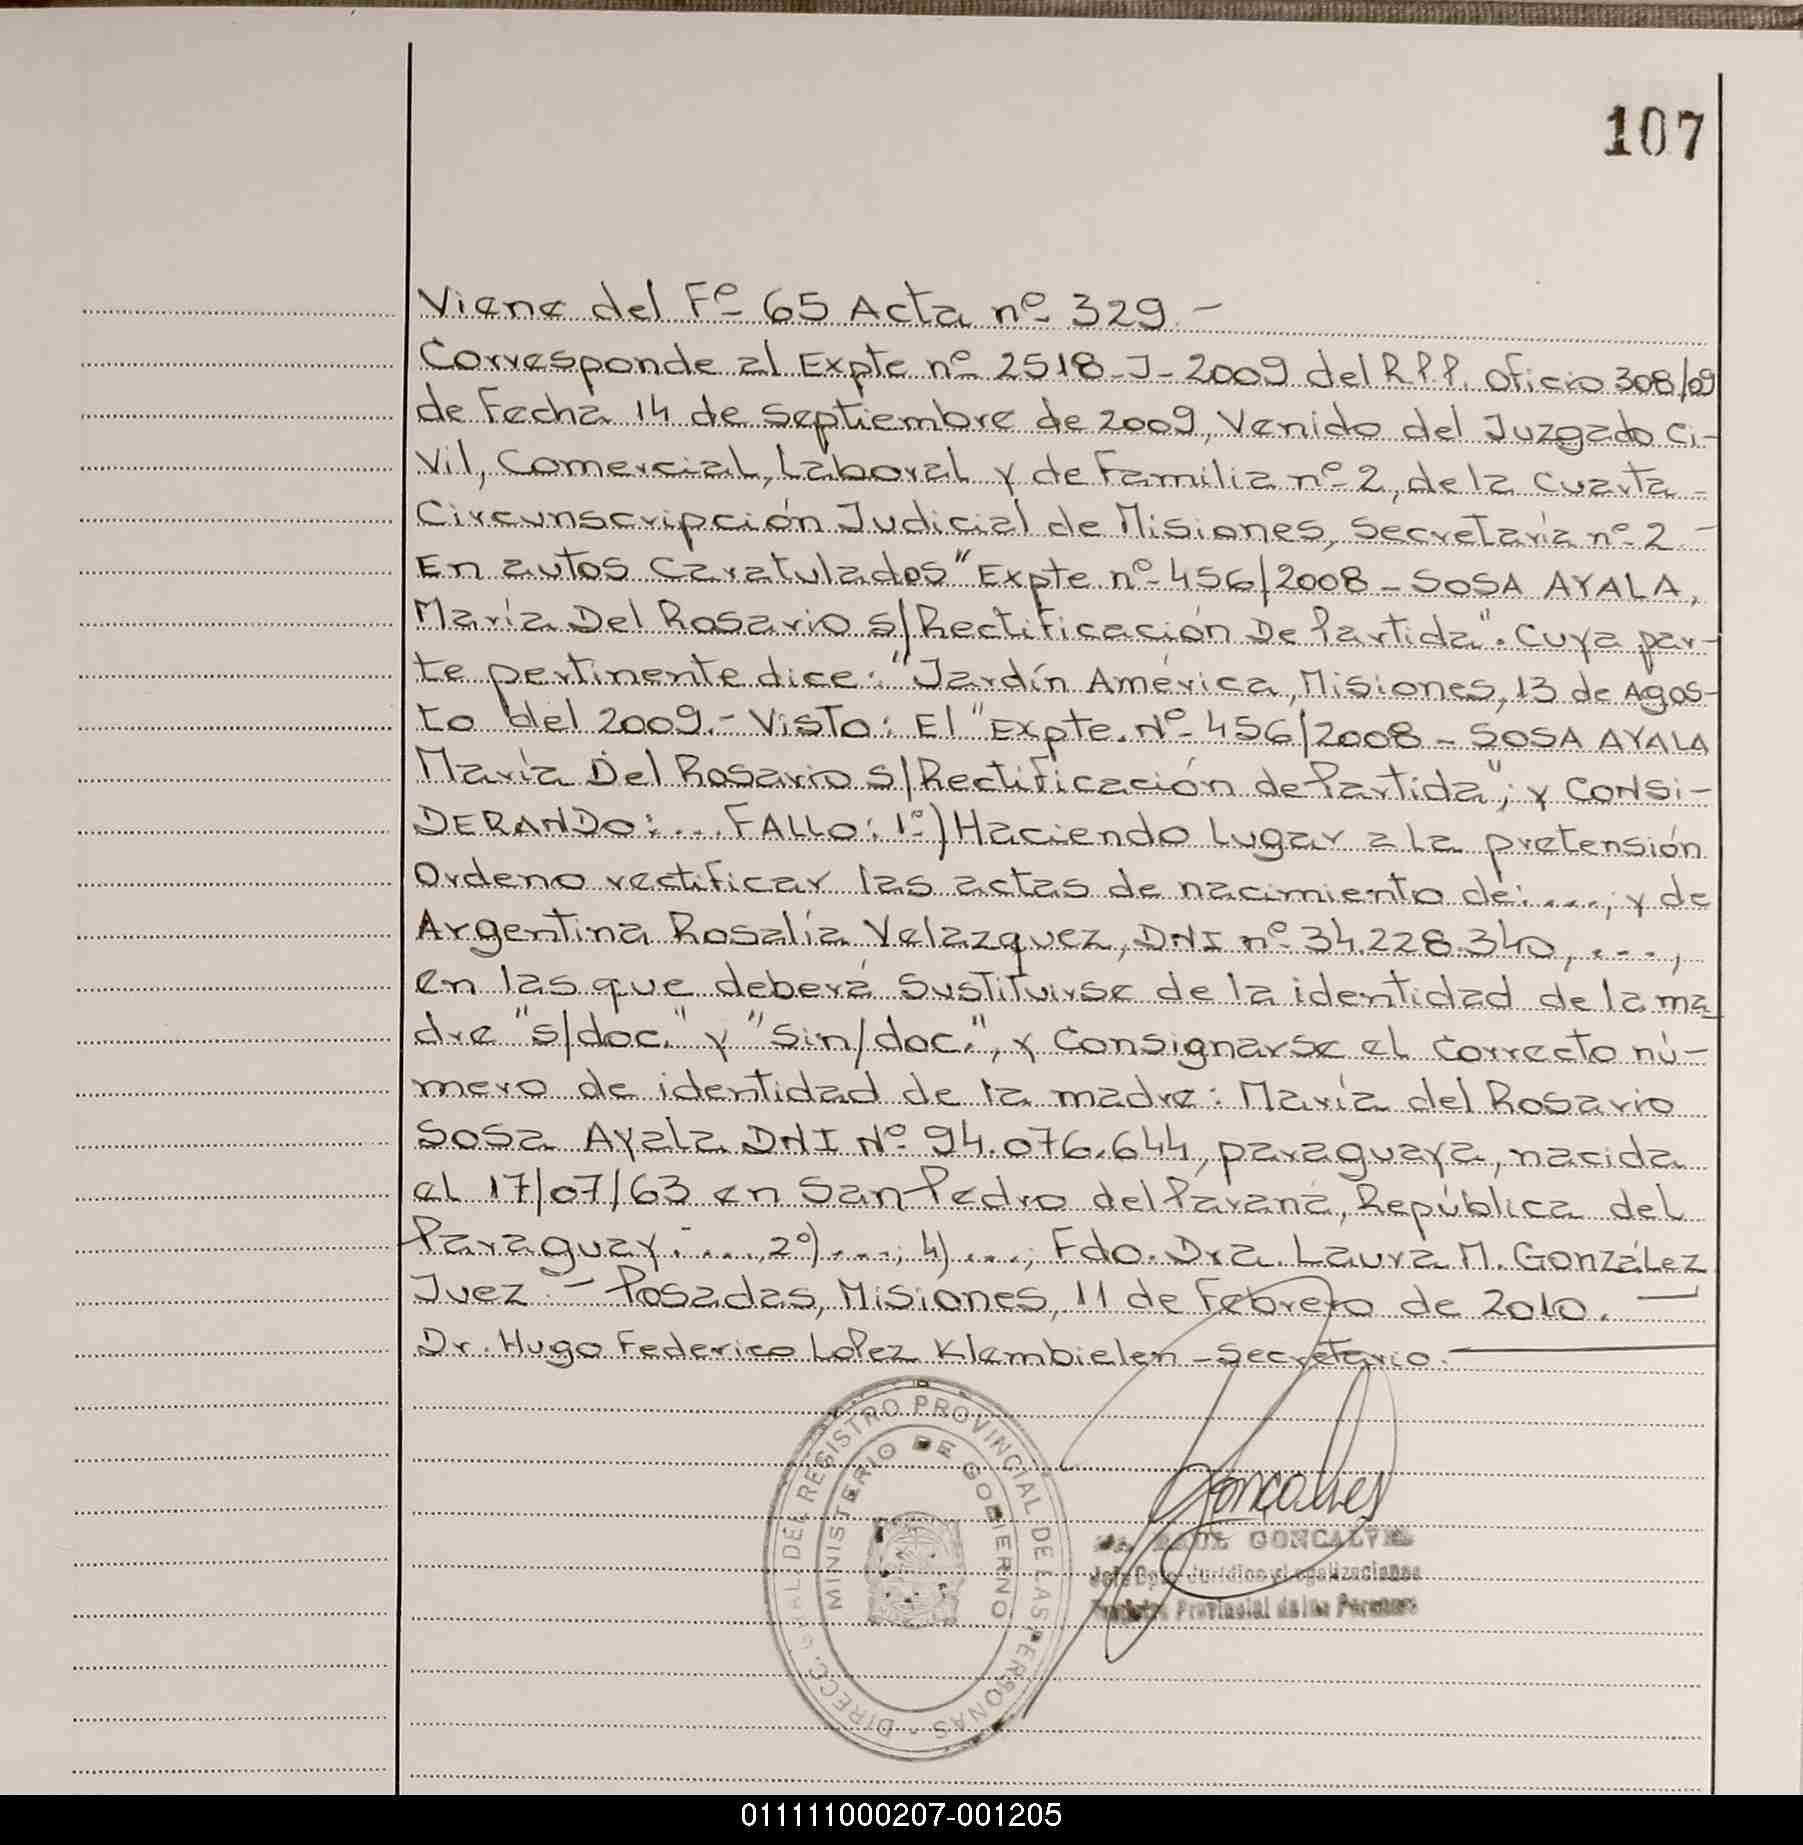 107
Viene del Fº 65 Acta nº 329.-
Corresponde al Expte nº 2518-J-2009 del R.P.P. oficio 308/09
de Fecha 14 de Septiembre de 2009, Venido del Juzgado Ci-
vil, Comercial, Laboral y de Familia nº 2, de la Cuarta -
Circunscripción Judicial de Misiones, Secretaría nº 2.-
En autos Caratulados "Expte nº 456/2008 - SOSA AYALA,
María Del Rosario s/Rectificación De Partida". Cuya par-
te pertinente dice: "Jardín América, Misiones, 13 de Agos-
to del 2009.- Visto: El "Expte. Nº 456/2008 - SOSA AYALA
María Del Rosario s/Rectificación de Partida", y CONSI-
DERANDO: ... FALLO: 1º) Haciendo lugar a la pretensión
Ordeno rectificar las actas de nacimiento de: ...., y de
Argentina Rosalía Velazquez, DNI nº 34.228.340, ....,
en las que deberá sustituirse de la identidad de la ma-
dre "s/doc." y "Sin/doc.", y Consignarse el Correcto nú-
mero de identidad de la madre: María del Rosario
Sosa Ayala DNI Nº 94.076.644, paraguaya, nacida
el 17/07/63 en San Pedro del Paraná, República del
Paraguay. ...., 2º) ....; 4) ....; Fdo. Dra. Laura M. González
Juez.- Posadas, Misiones, 11 de Febrero de 2010. -
Dr. Hugo Federico López Klambielen - Secretario.
DIRECC. GRAL. DEL REGISTRO PROVINCIAL DE LAS PERSONAS
MINISTERIO DE GOBIERNO
Goncalves
RAUL GONCALVES
Jefe Dpto. Jurídico y Legalizaciones
Registro Provincial de las Personas
011111000207-001205